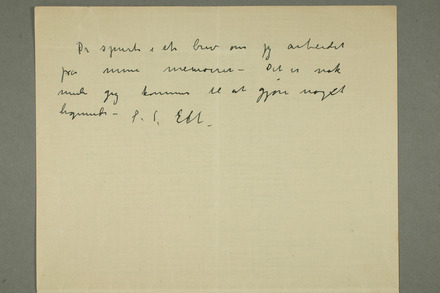 Du spurte i et brev om jeg arbeidet
på mine memoirer – Det er nok
jeg kommer til at gjøre noget
lignende –